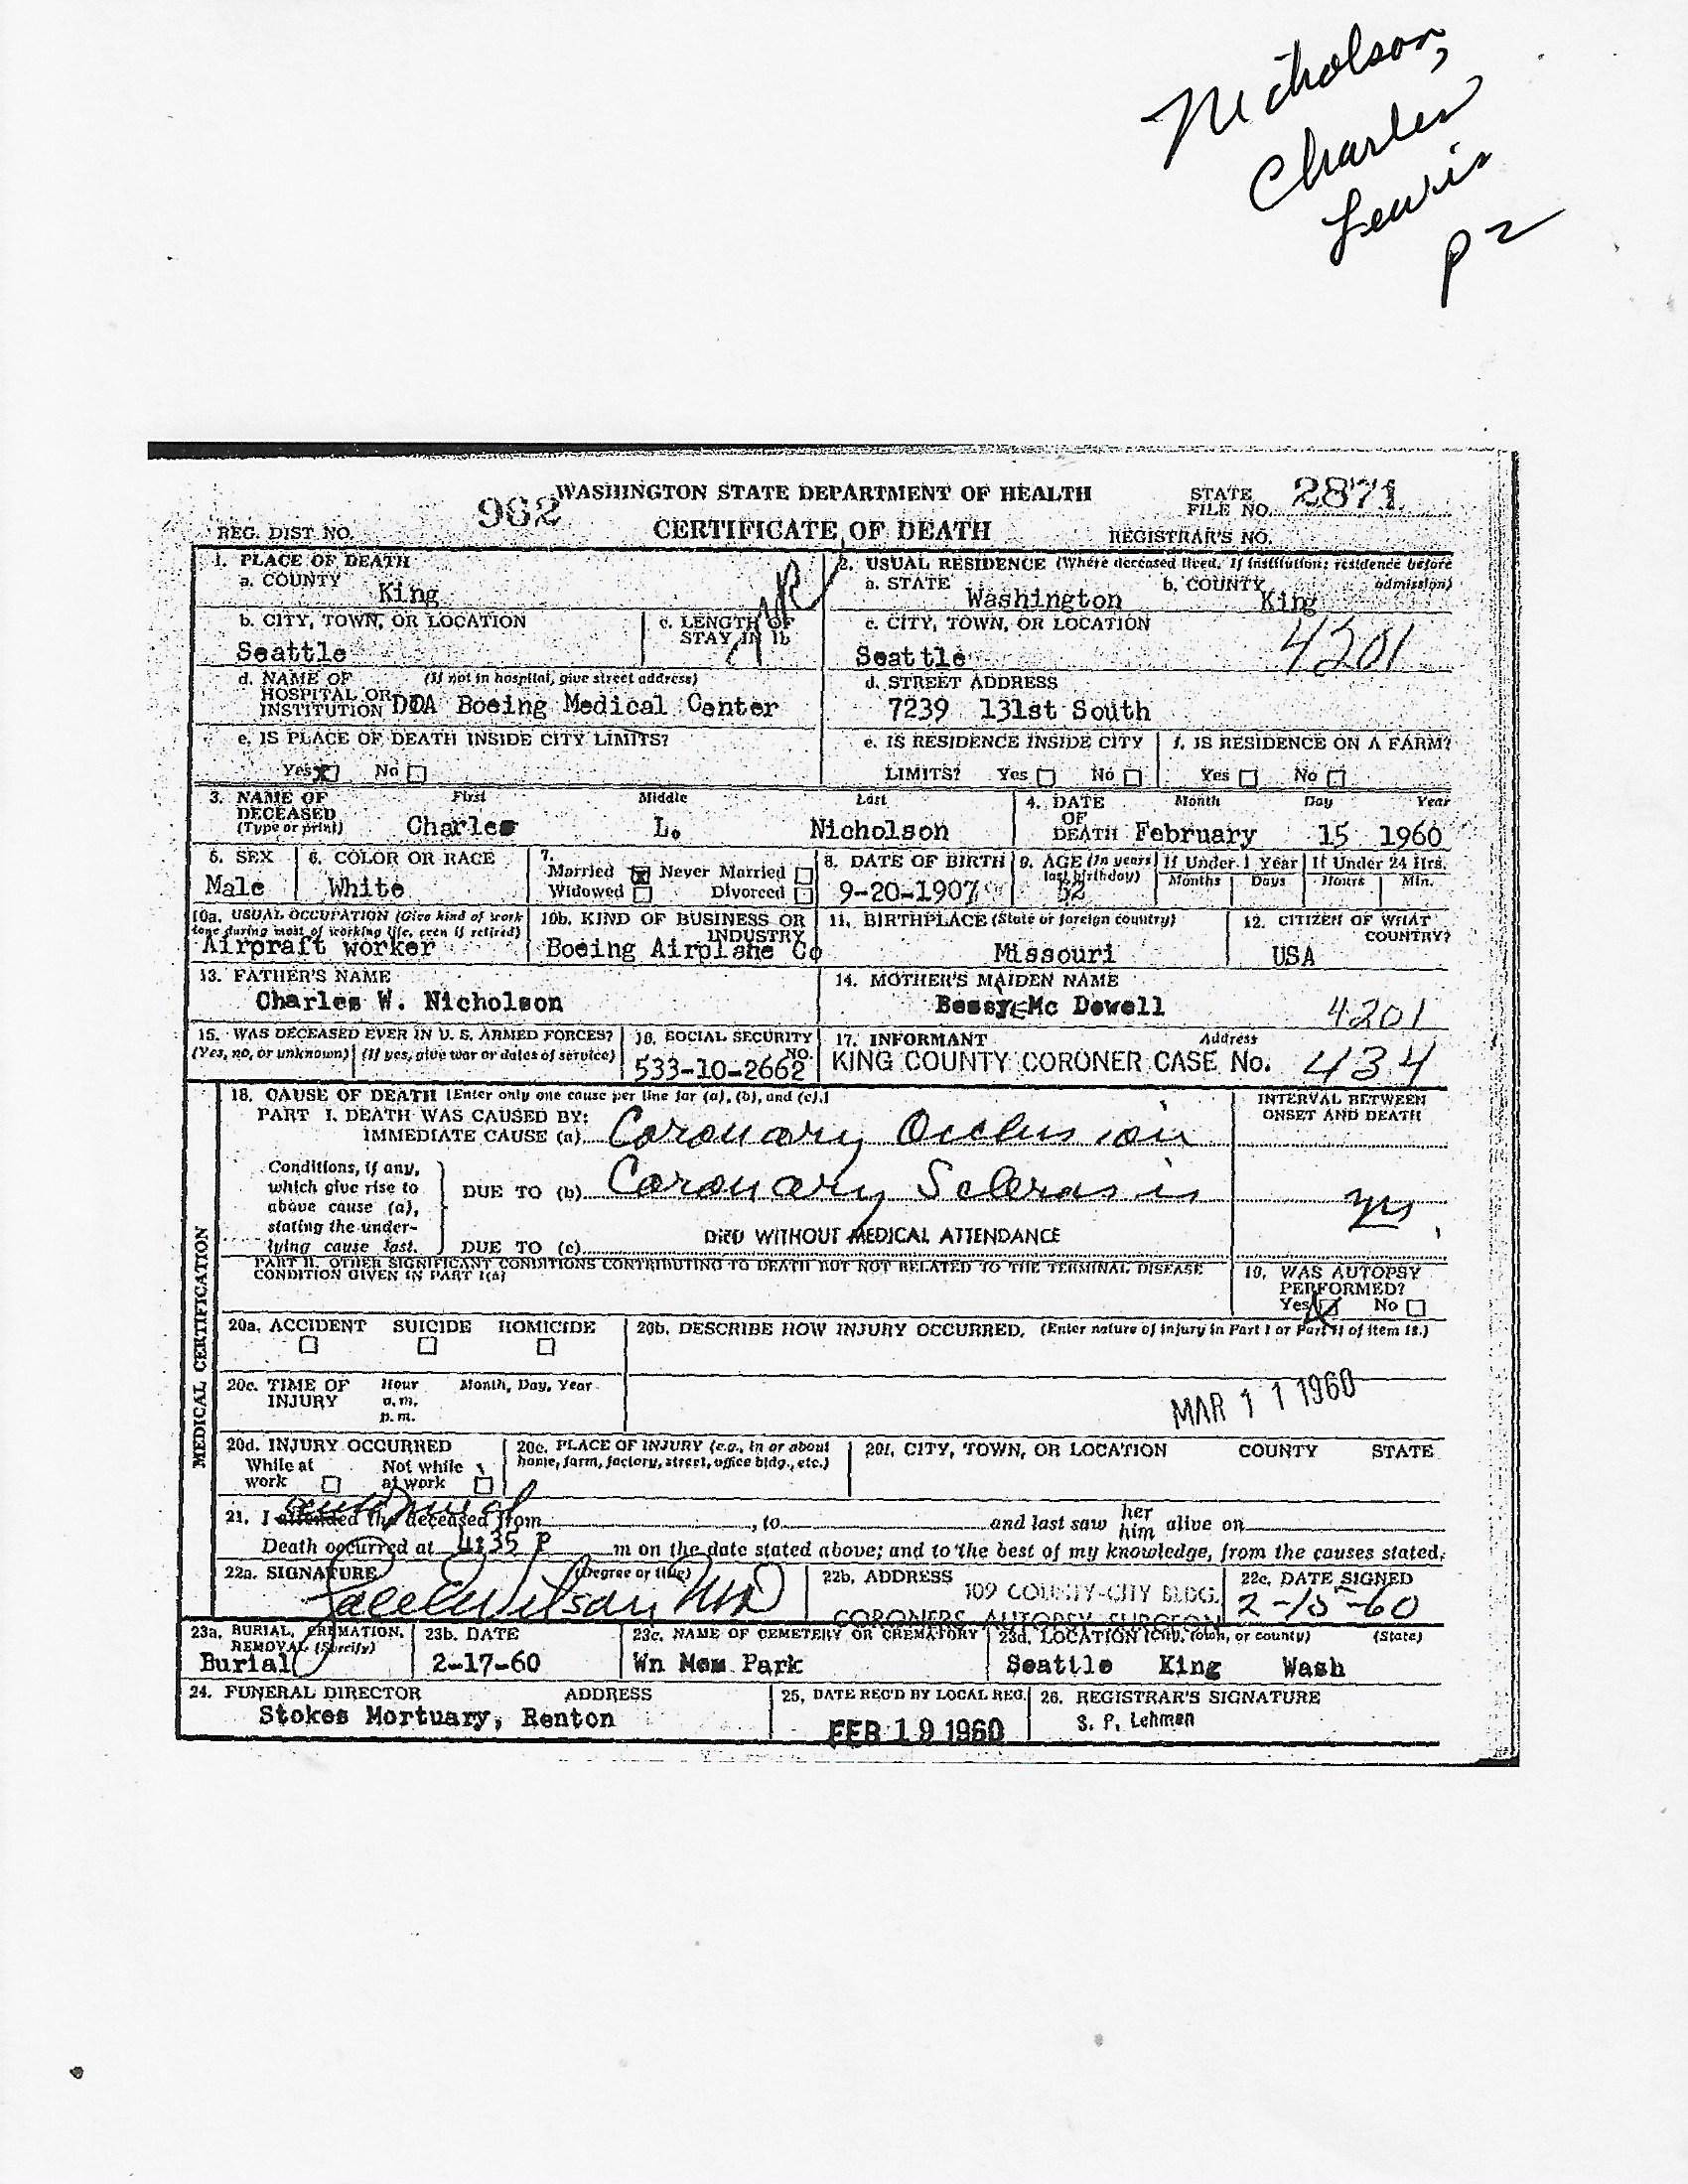 Nicholson,
Charles
Lewis
P 2
WASHINGTON STATE DEPARTMENT OF HEALTH
CERTIFICATE OF DEATH
962
REG. DIST NO.
STATE FILE NO. 2871
REGISTRAR'S NO.
1. PLACE OF DEATH
a. COUNTY King
2. USUAL RESIDENCE (Where deceased lived. If institution: residence before admission)
a. STATE Washington b. COUNTY King
b. CITY, TOWN, OR LOCATION
Seattle
c. LENGTH OF STAY IN 1b
c. CITY, TOWN, OR LOCATION
Seattle
4201
d. NAME OF HOSPITAL OR INSTITUTION (If not in hospital, give street address)
DOA Boeing Medical Center
d. STREET ADDRESS
7239 131st South
e. IS PLACE OF DEATH INSIDE CITY LIMITS?
Yes X No
e. IS RESIDENCE INSIDE CITY LIMITS? Yes No
f. IS RESIDENCE ON A FARM?
Yes No
3. NAME OF DECEASED (Type or print)
First Middle Last
Charles L. Nicholson
4. DATE OF DEATH Month Day Year
February 15 1960
5. SEX
Male
6. COLOR OR RACE
White
7. Married X Never Married
Widowed Divorced
8. DATE OF BIRTH
9-20-1907
9. AGE (In years last birthday)
52
If Under 1 Year
Months Days
If Under 24 Hrs.
Hours Min.
10a. USUAL OCCUPATION (Give kind of work done during most of working life, even if retired)
Airpraft worker
10b. KIND OF BUSINESS OR INDUSTRY
Boeing Airplane Co
11. BIRTHPLACE (State or foreign country)
Missouri
12. CITIZEN OF WHAT COUNTRY?
USA
13. FATHER'S NAME
Charles W. Nicholson
14. MOTHER'S MAIDEN NAME
Mc Dowell
4201
15. WAS DECEASED EVER IN U. S. ARMED FORCES?
(Yes, no, or unknown) (If yes, give war or dates of service)
16. SOCIAL SECURITY NO.
533-10-2662
17. INFORMANT Address
KING COUNTY CORONER CASE No. 434
MEDICAL CERTIFICATION
18. CAUSE OF DEATH [Enter only one cause per line for (a), (b), and (c).]
PART I. DEATH WAS CAUSED BY:
IMMEDIATE CAUSE (a) Coronary Occlusion
INTERVAL BETWEEN ONSET AND DEATH
Conditions, if any, which give rise to above cause (a), stating the underlying cause last.
DUE TO (b) Coronary Sclerosis
yrs
DIED WITHOUT MEDICAL ATTENDANCE
DUE TO (c)
PART II. OTHER SIGNIFICANT CONDITIONS CONTRIBUTING TO DEATH BUT NOT RELATED TO THE TERMINAL DISEASE CONDITION GIVEN IN PART I(a)
19. WAS AUTOPSY PERFORMED?
Yes X No
20a. ACCIDENT SUICIDE HOMICIDE
20b. DESCRIBE HOW INJURY OCCURRED. (Enter nature of injury in Part I or Part II of item 18.)
20c. TIME OF INJURY Hour a.m. p.m. Month, Day, Year
MAR 11 1960
20d. INJURY OCCURRED
While at work Not while at work
20e. PLACE OF INJURY (e.g., in or about home, farm, factory, street, office bldg., etc.)
20f. CITY, TOWN, OR LOCATION COUNTY STATE
21. I attended the deceased from , to and last saw her him alive on
Death occurred at 4:35 P m on the date stated above; and to the best of my knowledge, from the causes stated.
22a. SIGNATURE (Degree or title)
Wilson MD
22b. ADDRESS 109 COUNTY-CITY BLDG.
CORONERS AUTOPSY SURGEON
22c. DATE SIGNED
2-15-60
23a. BURIAL, CREMATION, REMOVAL (Specify)
Burial
23b. DATE
2-17-60
23c. NAME OF CEMETERY OR CREMATORY
Wn Mem Park
23d. LOCATION (City, town, or county) (State)
Seattle King Wash
24. FUNERAL DIRECTOR ADDRESS
Stokes Mortuary, Renton
25. DATE REC'D BY LOCAL REG.
FEB 19 1960
26. REGISTRAR'S SIGNATURE
S. P. Lehman